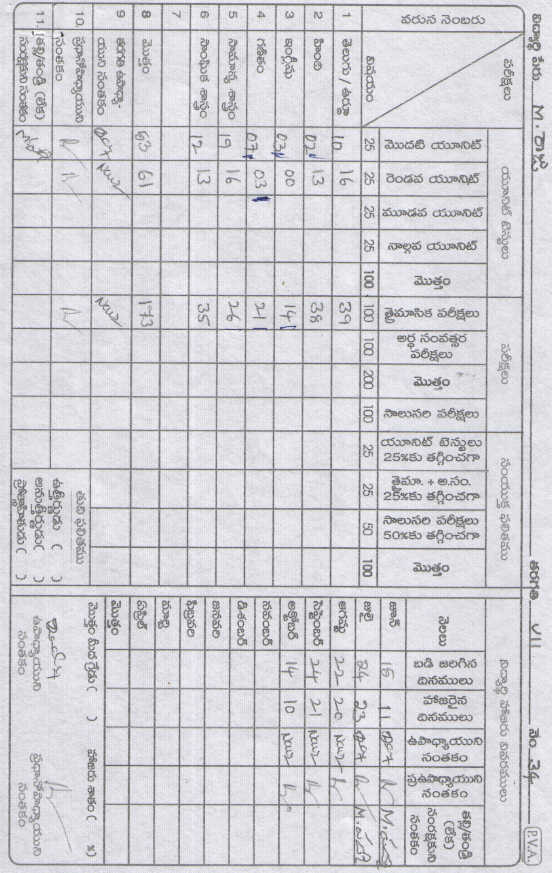 విద్యార్థి పేరు M. రాజు తరగతి VII నెం. 34 P.V.A.
వరుస నెంబరు పరీక్షలు విషయం యూనిట్ టెస్టులు పరీక్షలు సంయుక్త ఫలితము
మొదటి యూనిట్ రెండవ యూనిట్ మూడవ యూనిట్ నాల్గవ యూనిట్ మొత్తం త్రైమాసిక పరీక్షలు అర్ధ సంవత్సర పరీక్షలు మొత్తం సాలుసరి పరీక్షలు యూనిట్ టెస్టులు 25%కు తగ్గించగా త్రైమా. + అ.సం. 25%కు తగ్గించగా సాలుసరి పరీక్షలు 50%కు తగ్గించగా మొత్తం
25 25 25 25 100 100 100 200 100 25 25 50 100
1 తెలుగు / ఉర్దూ 10 16 39
2 హింది 02 13 38
3 ఇంగ్లీషు 03 00 14
4 గణితం 07 03 21
5 సామాన్య శాస్త్రం 19 16 26
6 సాంఘిక శాస్త్రం 12 13 35
7
8 మొత్తం 63 61 173
9 తరగతి ఉపాధ్యా-యుని సంతకం
10. ప్రధానోపాధ్యాయుని సంతకం
11. తల్లి/తండ్రి (లేక) సంరక్షకుని సంతకం
తుది ఫలితము
ఉత్తీర్ణుడు ( )
అనుత్తీర్ణుడు ( )
ప్రోత్సాహితుడు ( )
విద్యార్థి హాజరు వివరములు
నెలలు బడి జరిగిన దినములు హాజరైన దినములు ఉపాధ్యాయుని సంతకం ప్రఉపాధ్యాయుని సంతకం తల్లి/తండ్రి (లేక) సంరక్షకుని సంతకం
జూన్ 15 11
జులై 24 23
ఆగష్టు 22 20
సెప్టెంబర్ 24 21
అక్టోబర్ 14 10
నవంబర్
డిశంబర్
జనవరి
ఫిబ్రవరి
మార్చి
ఏప్రిల్
మొత్తం
మొత్తం మీద గ్రేడు ( ) హాజరు శాతం ( %)
ఉపాధ్యాయుని సంతకం ప్రధానోపాధ్యాయుని సంతకం